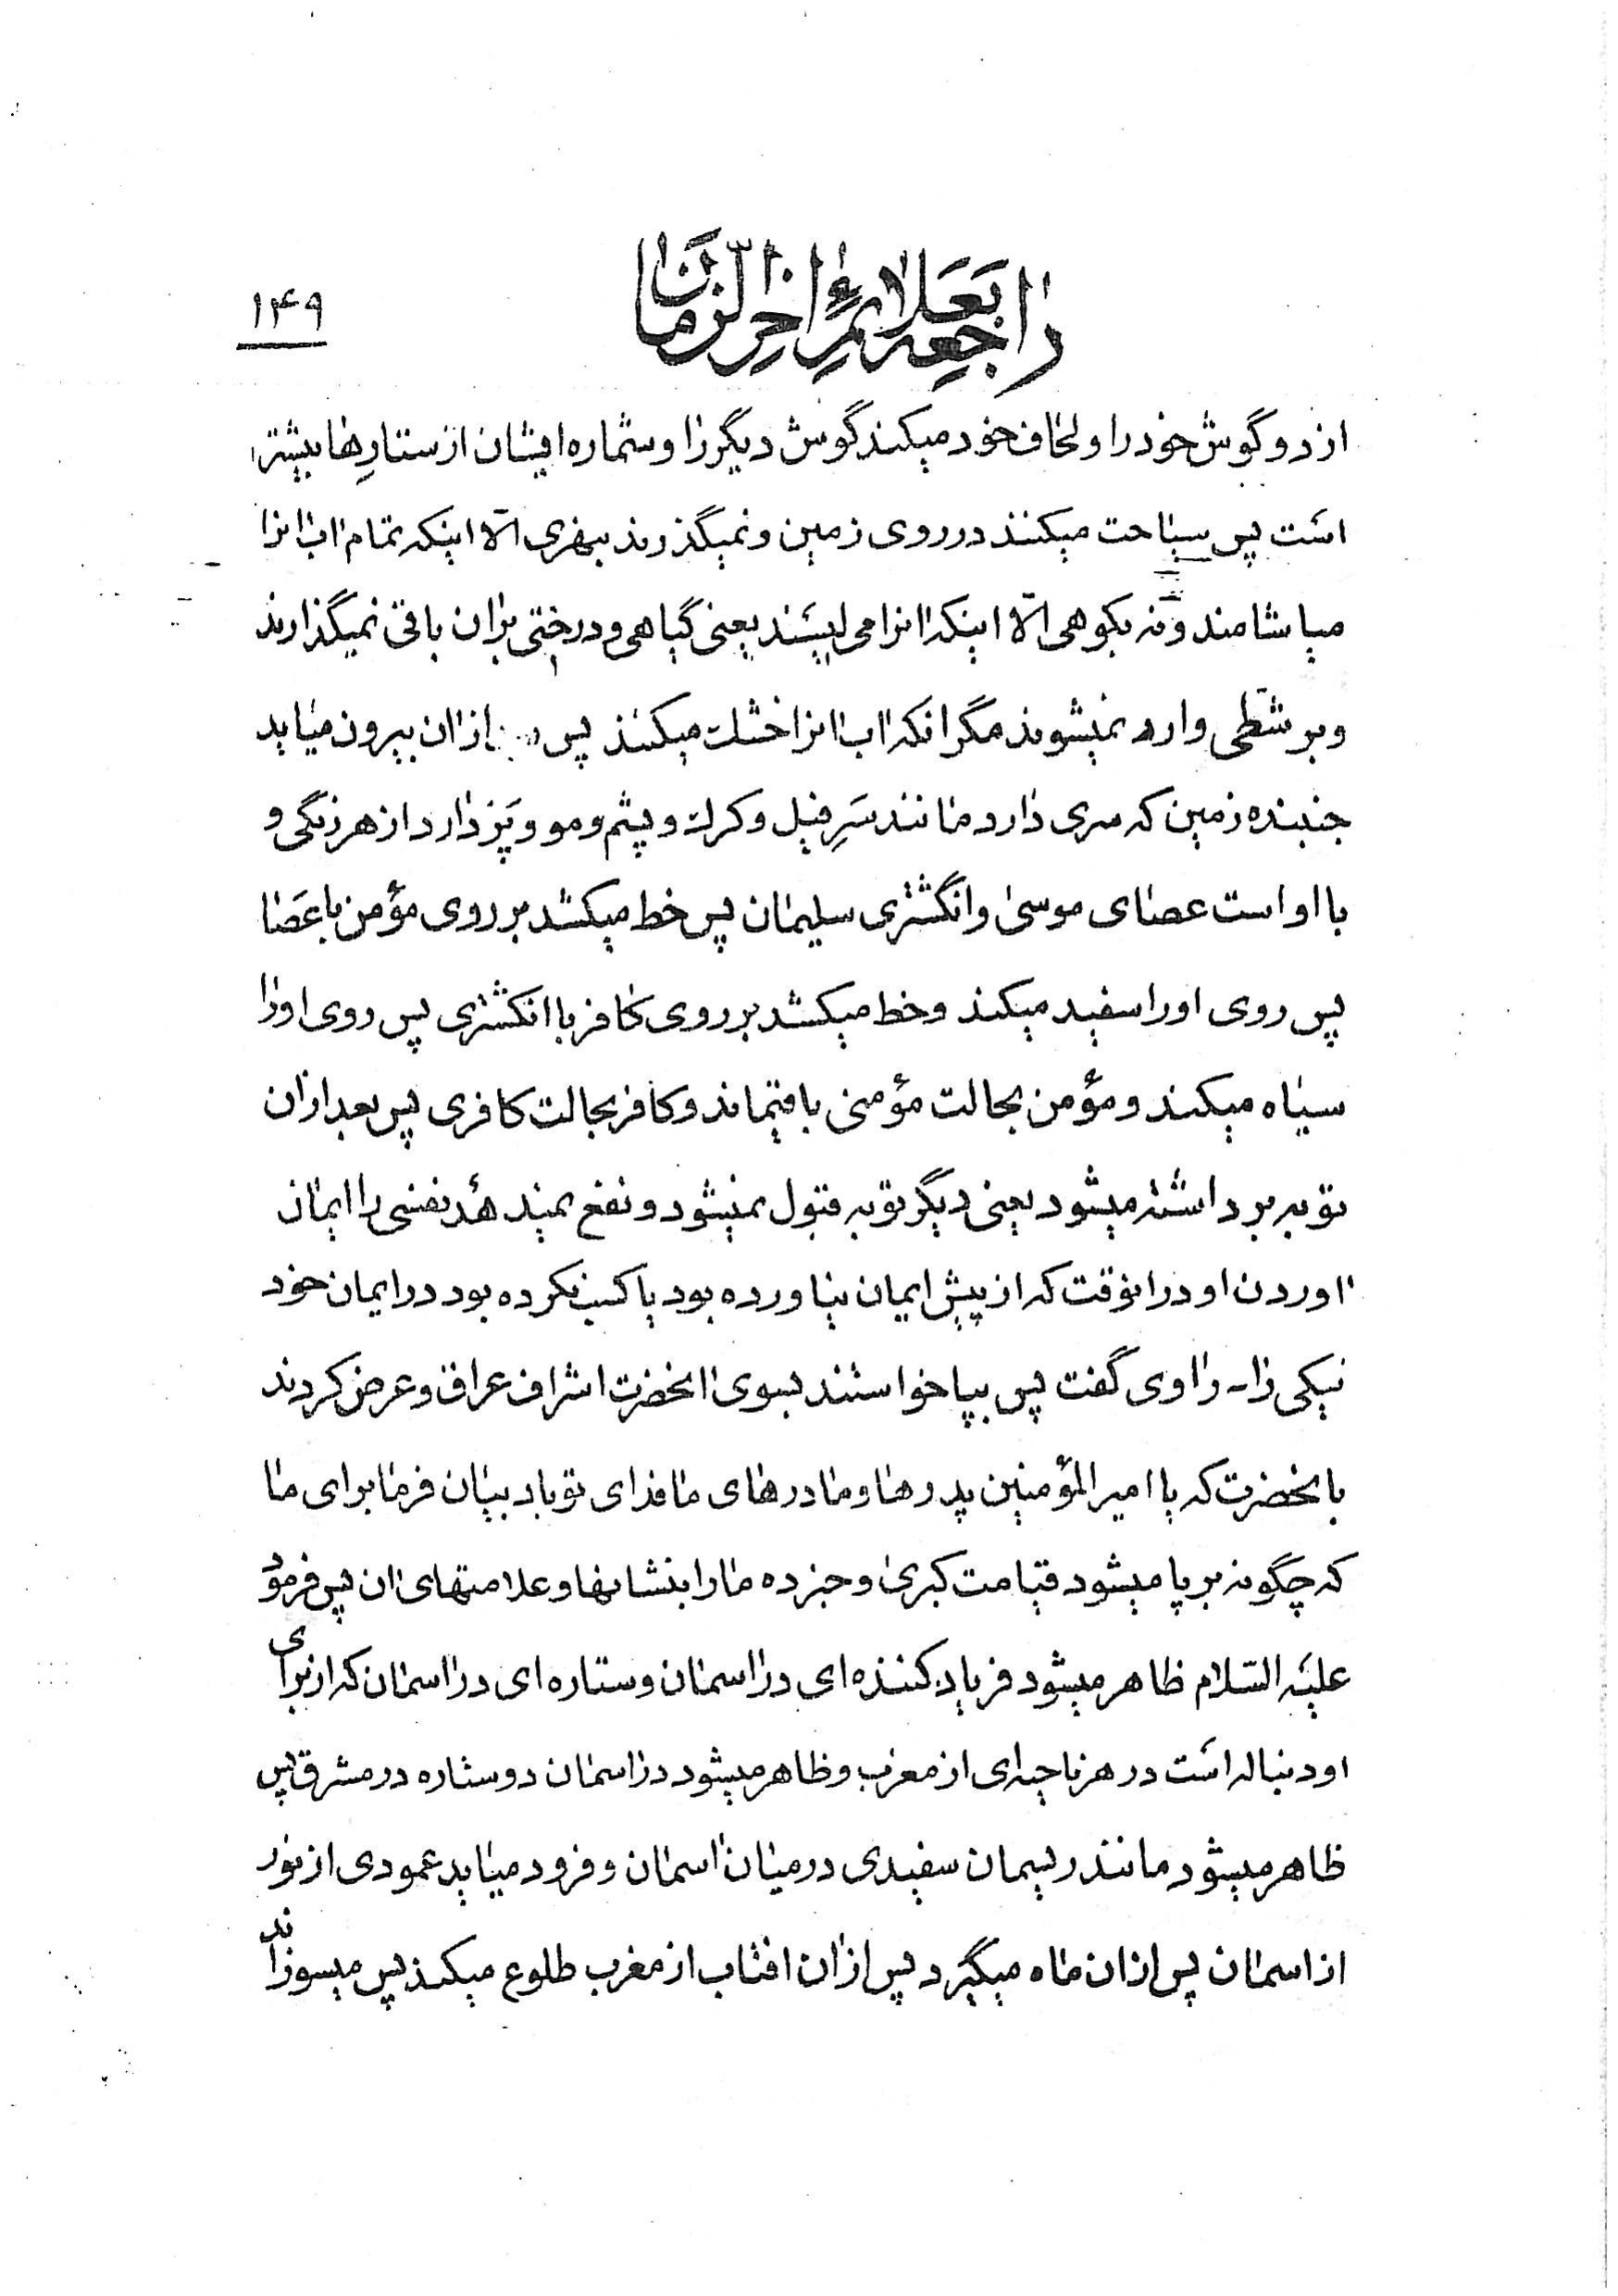 راجعه بعلائم اخر الزمان
۱۴۹
از دو گوش خود را و لحاف خود میکند گوش دیگر را و شماره ایشان از ستاره‌ها بیشتر
است پس سیاحت میکنند در روی زمین و نمیگذرند بنهری الّا اینکه تمام اب انرا
میاشامند و نه بکوهی الّا اینکه انرا می لیسند یعنی گیاهی و درختی بران باقی نمیگذارند
و بر شطّی وارد نمیشوند مگر انکه اب انرا خشک میکنند پس از ان بیرون میاید
جنبنده زمین که سری دارد مانند سَرِ فیل و کرک و پشم و مو و پَر دارد از هر رنگی و
با او است عصای موسی و انگشتری سلیمان پس خط میکشد بر روی مؤمن با عَصا
پس روی او را سفید میکند و خط میکشد بر روی کافر با انکشتری پس روی او را
سیاه میکند و مؤمن بحالت مؤمنی باقیماند و کافر بحالت کافری پس بعد ازان
توبه برداشته میشود یعنی دیگر توبه قبول نمیشود و نفع نمیدهد نفسی را ایمان
اوردن او در انوقت که از پیش ایمان نیاورده بود یا کسب نکرده بود در ایمان خود
نیکی را ـ راوی گفت پس بپا خواستند بسوی انحضرت اشراف عراق و عرض کردند
بانحضرت که یا امیر المؤمنین پدرها و مادرهای ما فدای تو باد بیان فرما برای ما
که چگونه بر پا میشود قیامت کبری و خبر ده ما را بنشانها و علامتهای ان پس فرمود
علیه السّلام ظاهر میشود فریاد کننده‌ای در اسمان و ستاره‌ای در اسمان که از برای
او دنباله است در هر ناحیه‌ای از مغرب و ظاهر میشود در اسمان دو ستاره در مشرق پس
ظاهر میشود مانند ریسمان سفیدی در میان اسمان و فرود میاید عمودی از نور
از اسمان پس ازان ماه میگیرد پس ازان افتاب از مغرب طلوع میکند پس میسوزاند